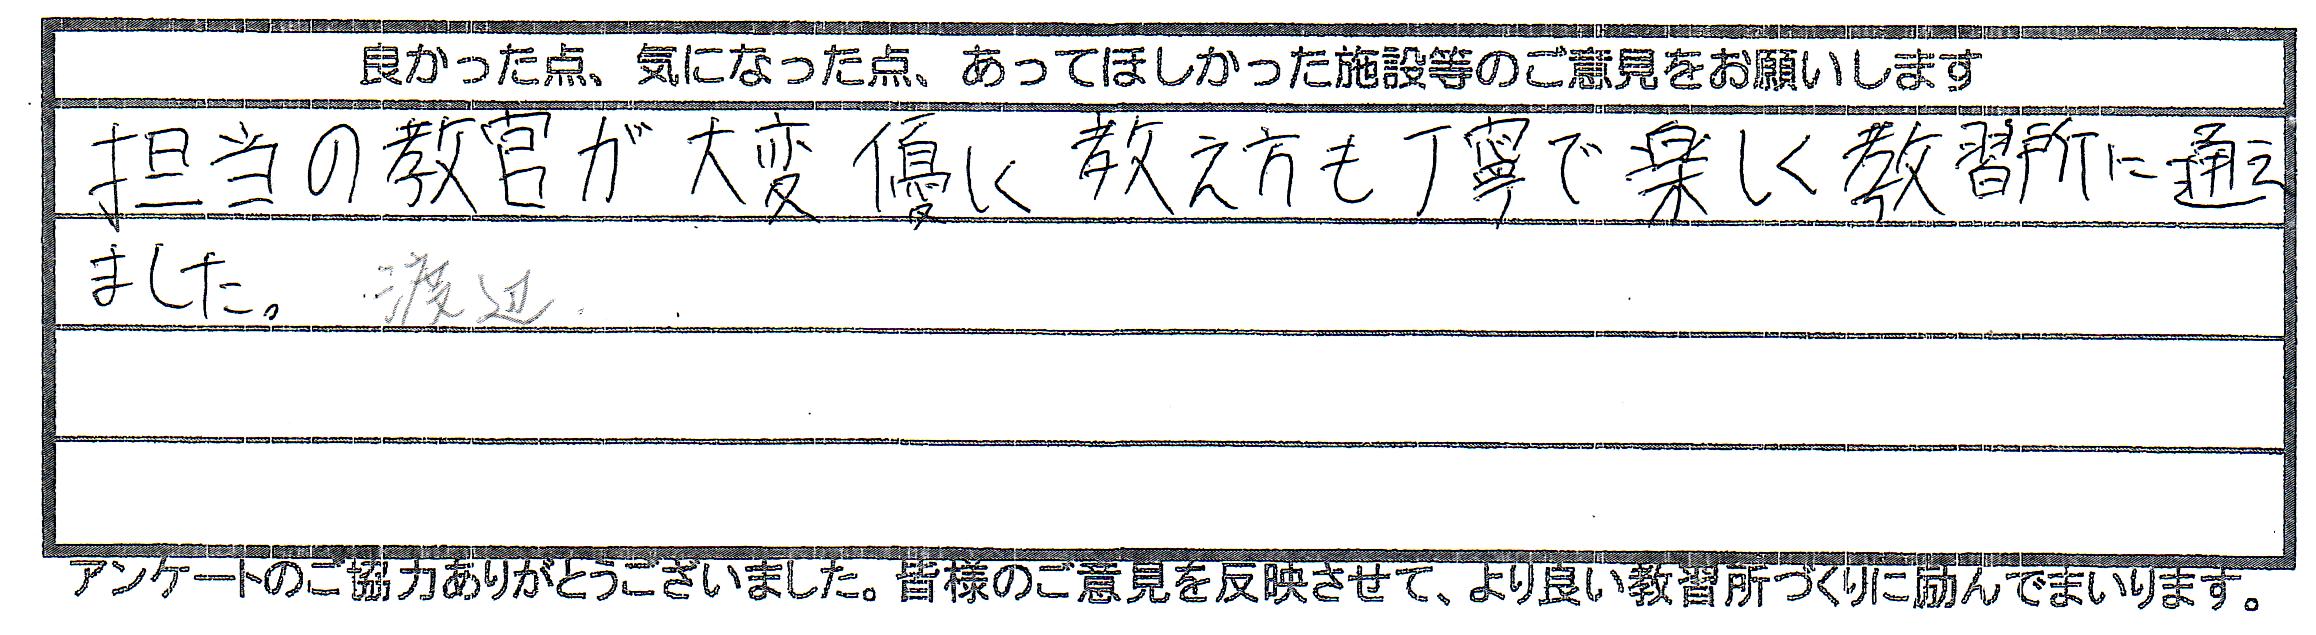 良かった点、気になった点、あってほしかった施設等のご意見をお願いします
担当の教官が大変優しく教え方も丁寧で楽しく教習所に通え
ました。 渡辺
アンケートのご協力ありがとうございました。皆様のご意見を反映させて、より良い教習所づくりに励んでまいります。